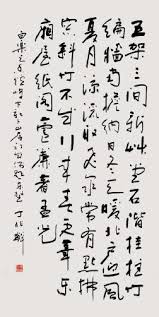 五架三间新艸堂石階桂柱竹
编墙南檐纳日冬天暖北户迎风
夏月凉洒砌飞泉才有点拂
窗斜竹不成行来春更葺东
厢屋纸阁芦簾著孟光